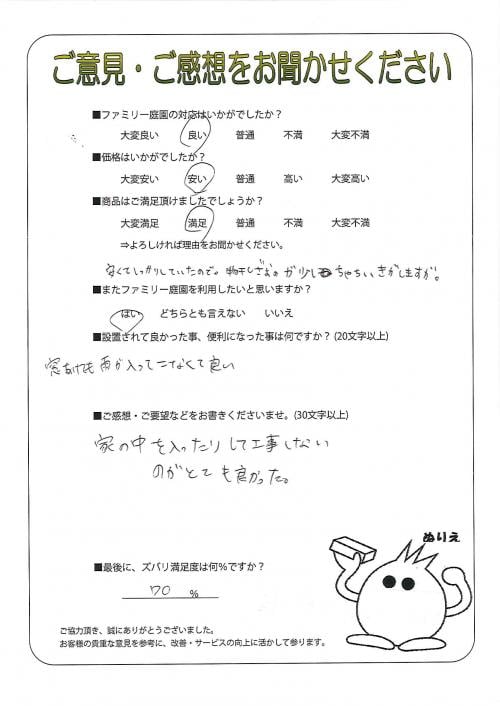 ご意見・ご感想をお聞かせください
■ファミリー庭園の対応はいかがでしたか？
大変良い 良い 普通 不満 大変不満
■価格はいかがでしたか？
大変安い 安い 普通 高い 大変高い
■商品はご満足頂けましたでしょうか？
大変満足 満足 普通 不満 大変不満
⇒よろしければ理由をお聞かせください。
安くてしっかりしていたので。物干しざおのが少しちゃちいきがしますが。
■またファミリー庭園を利用したいと思いますか？
はい どちらとも言えない いいえ
■設置されて良かった事、便利になった事は何ですか？(20文字以上)
窓あけても雨が入ってこなくて良い
■ご感想・ご要望などをお書きくださいませ。(30文字以上)
家の中を入ったりして工事しない
のがとても良かった。
ぬりえ
■最後に、ズバリ満足度は何％ですか？
70 %
ご協力頂き、誠にありがとうございました。
お客様の貴重な意見を参考に、改善・サービスの向上に活かして参ります。